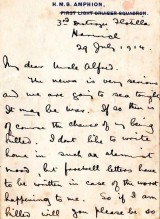 H.M.S. AMPHION.
FIRST LIGHT CRUISER SQUADRON
3rd Destroyer Flotilla
Harwich
29 July, 1914.
My dear Uncle Alfred.
The news is very serious
and we are going to sea tonight
It may be war. If so there is
of course the chance of my being
killed. I dont like to write
home in such an alarmist
mood, but farewell letters have
to be written in case of the worst
happening to me. So if I am
killed will you please be so